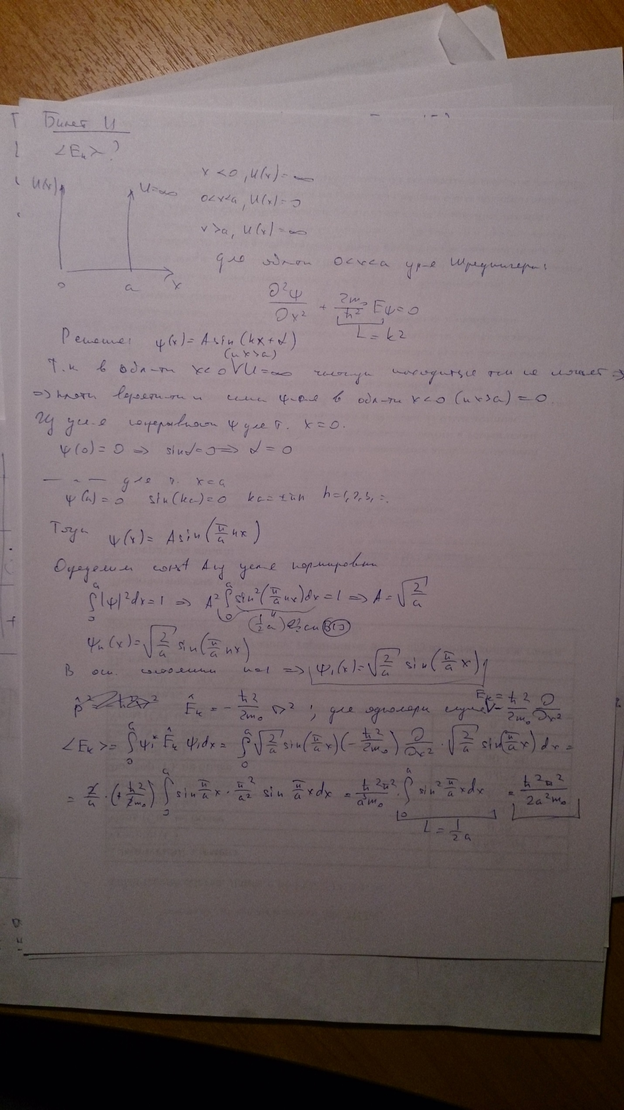 Билет 11
<E_k> ?
U(x) U=∞ x<0, U(x)=∞
0<x<a, U(x)=0
x>a, U(x)=∞
0 a x
для обл-ти 0<x<a ур-е Шредингера:
∂²ψ/∂x² + 2m₀/ħ² Eψ=0
= k²
Решение: ψ(x)=A sin(kx+α)
(и x>a)
Т.к в обл-ти x<0 U=∞ частица находиться там не может ⇒
⇒ плотн вероятности и сама ψ в обл-ти x<0 (и x>a) = 0.
Из усл-я непрерывности ψ для т. x=0.
ψ(0)=0 ⇒ sinα=0 ⇒ α=0
— " — для т. x=a
ψ(a)=0 sin(ka)=0 ka=±πn n=1,2,3,...
Тогда ψ(x)=A sin(π/a nx)
Определим const A из усл-я нормировки
∫₀ᵃ|ψ|²dx=1 ⇒ A²∫₀ᵃ sin²(π/a nx)dx=1 ⇒ A=√(2/a)
(1/2 a)
ψₙ(x)=√(2/a) sin(π/a nx)
В осн. состоянии n=1 ⇒ ψ₁(x)=√(2/a) sin(π/a x)
p̂² Ê_k = -ħ²/2m₀ ∇² ; для одномерн случая Ê_k = -ħ²/2m₀ ∂/∂x²
<E_k>= ∫₀ᵃ ψ₁* Ê_k ψ₁dx = ∫₀ᵃ √(2/a) sin(π/a x)(-ħ²/2m₀) ∂/∂x² · √(2/a) sin(π/a x) dx =
= 2/a · (+ħ²/2m₀) ∫₀ᵃ sin π/a x · π²/a² sin π/a x dx = ħ²π²/a³m₀ · ∫₀ᵃ sin² π/a x dx = ħ²π²/2a²m₀
= 1/2 a